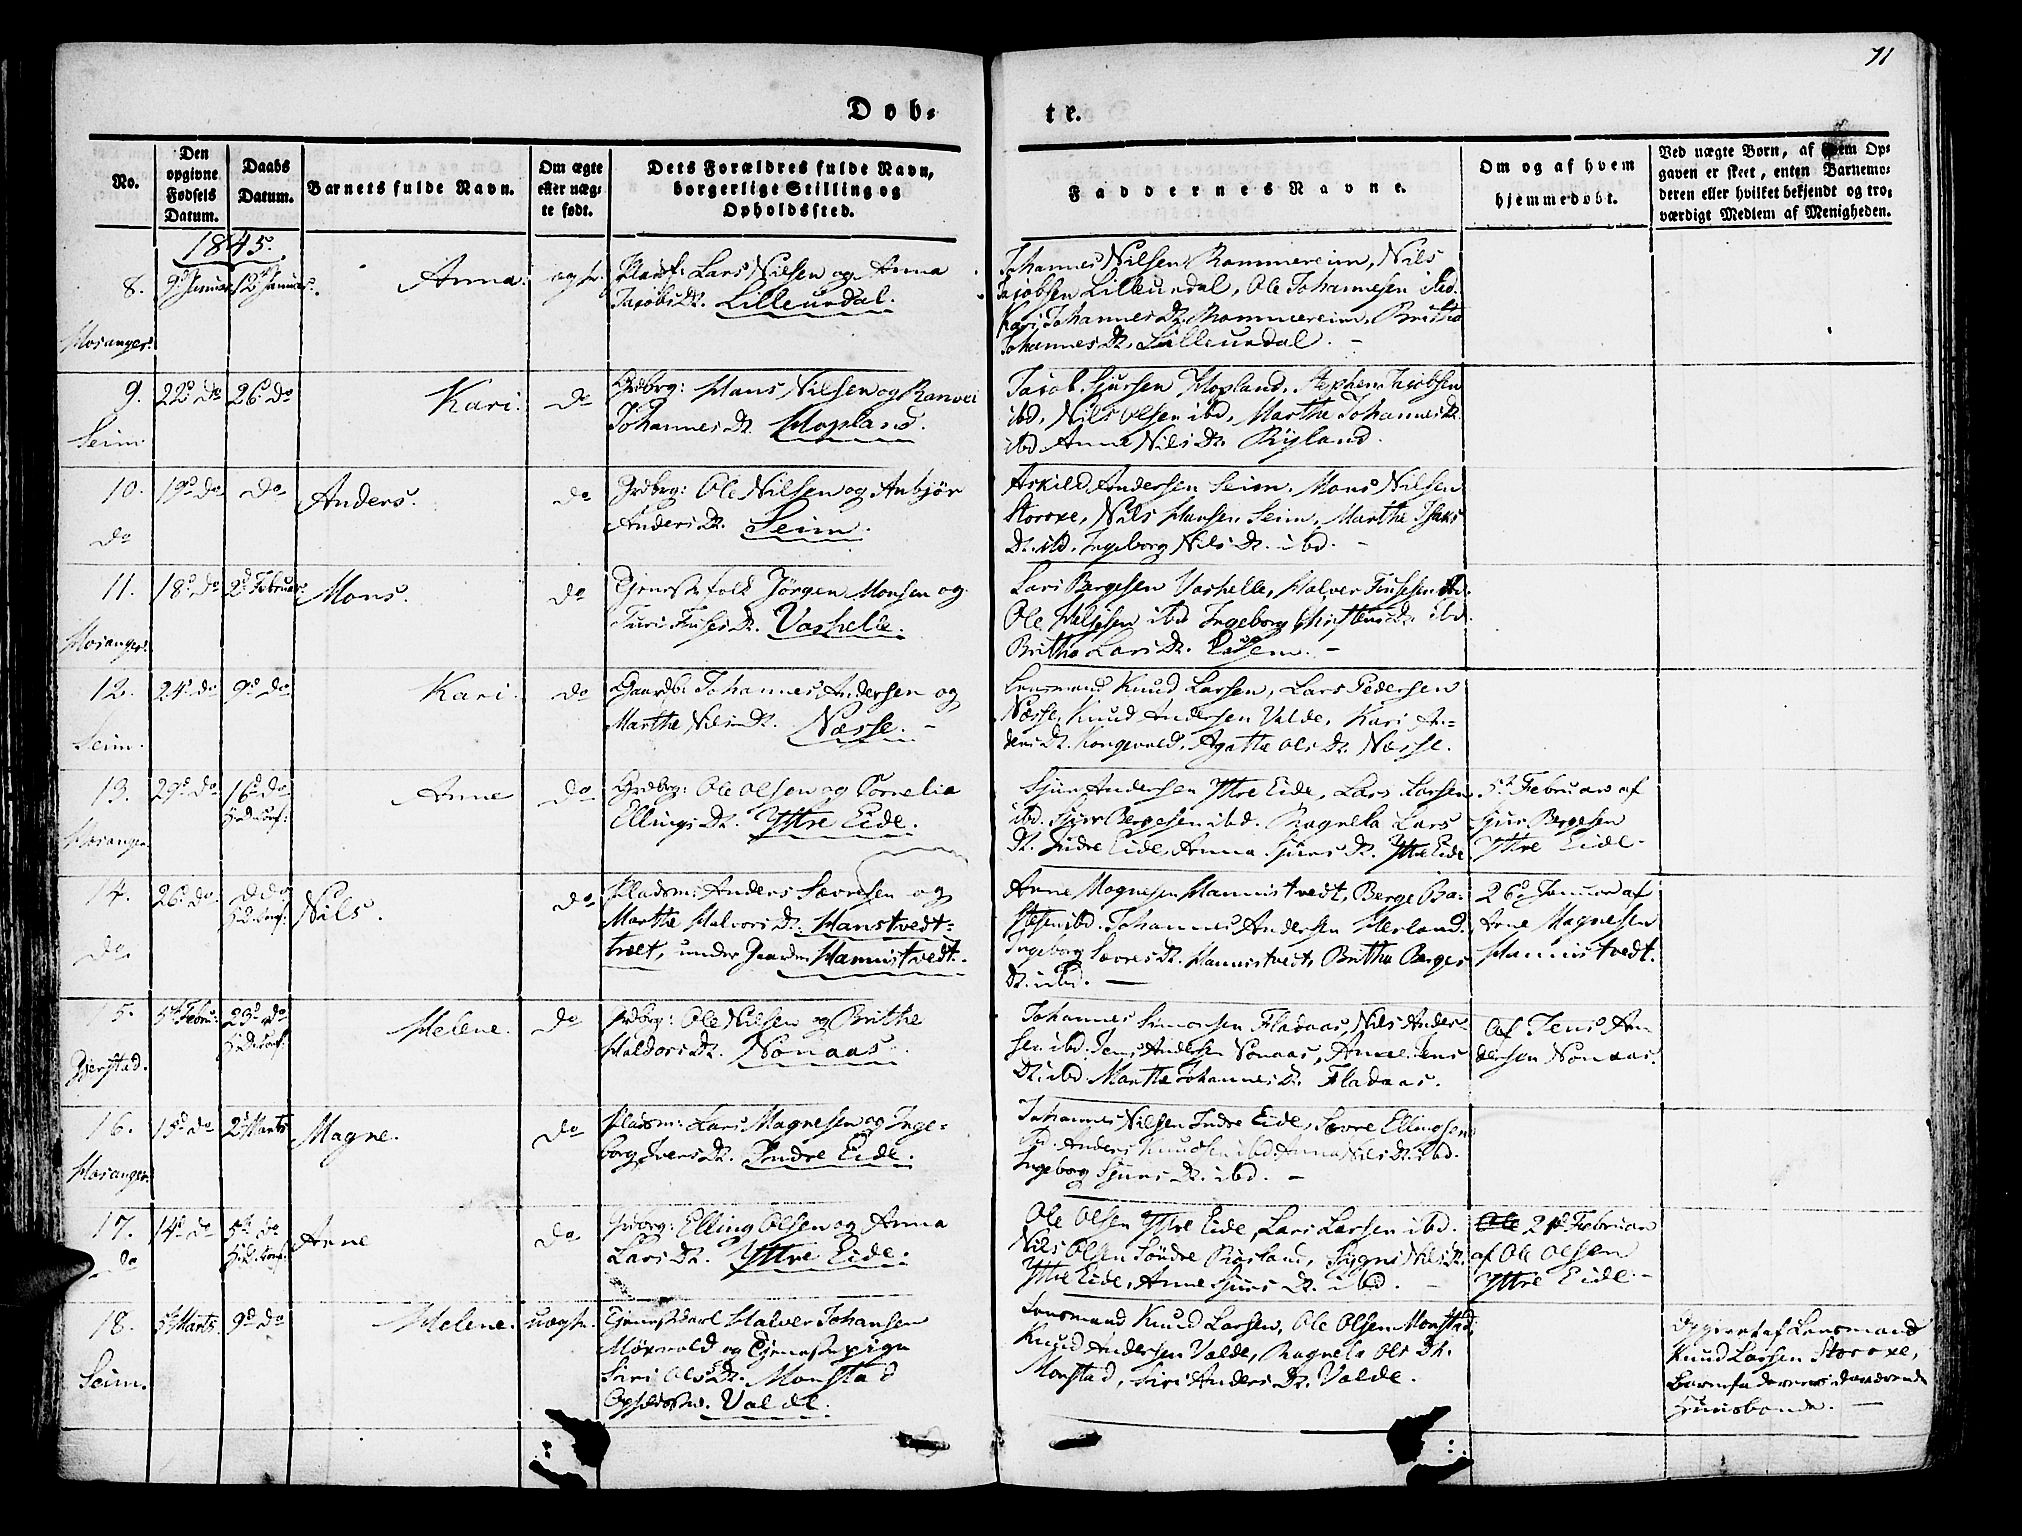 71
Døb=
te.
No.
Den opgivne Fødsels Datum.
Daabs Datum.
Barnets fulde Navn.
Om ægte eller uægte født.
Dets Forældres fulde Navn, borgerlige Stilling og Opholdssted.
Faddernes Navne.
Om og af hvem hjemmedøbt.
Ved uægte Børn, af hvem Opgaven er skeet, enten Barnemoderen eller hvilket bekjendt og troværdigt Medlem af Menigheden.
1845.
8. 9d Januar 12 Januar. Anna
Mosanger.
Lars Nilsen og Anna
Jacobs Dr. Lilleurdal.
Johannes Nilsen Rommereim, Nils
Jacobsen Lilleurdal, Ole Johannesen ibd.
Kari Johannes Dr. Rommereim, Britha
Johannes Dr. Lilleurdal. –
9. 22d do 26d do Kari. do
Seim
Grdbrg: Hans Nilsen og Ranvei
Johannes Dr. Hopland.
Jacob Sjursen Hopland, Stephen Jacobsen
ibd, Nils Olsen ibd, Marthe Johannes Dr.
ibd Anne Nils Dr. Ryland.
10. 19d do do Anders. do
do
Grdbrg: Ole Nilsen og Anbjør
Anders Dr. Seim.
Askild Andersen Seim, Mons Nilsen
Storoxe, Nils Hansen Seim, Marthe Isaks
Dr. ibd. Ingeborg Nils Dr. ibd. –
11. 18d do 2d Februar Mons. do
Mosanger.
Tjenestefolk Jörgen Monsen og
Turi Dr. Vashelle.
Lars Bergesen Vashelle, Halver
Ole ibd Ingeborg Dr. ibd.
Britha Lars Dr. –
12. 24d do 9d do Kari. do
Seim.
Gaardb: Johannes Andersen og
Marthe Nils Dr. Næsse. –
Lensmand Knud Larsen, Lars Pedersen
Næsse, Knud Andersen Valde, Kari An=
ders Dr. Kongevold, Agathe Ols Dr. Næsse.
13. 29d do 16d do Anne do
Mosanger
Grdbrg: Ole Olsen og Cornelia
Ellings Dr. Yttre Eide.
Sjur Andersen Yttre Eide, Lars Larsen
ibd. Sjur Bergesen ibd. Ragnela Lars
Dr. Indre Eide, Anna Sjurs Dr. Yttre Eide
5te Februar af
Sjur Bergesen
Yttre Eide.
14. 26d do do Nils. do
do.
Pladsm: Anders Sævresen og
Marthe Halvors Dr. Hanstvedt=
træet, under Gaarden Hannistvedt.
Arne Magnesen Hannistvedt, Berge Ba=
ibd. Johannes Andersen Herland.
Ingeborg Sævres Dr. Hannistvedt, Britha Berges
Dr. ibd. –
26d Januar af
Arne Magnesen
Hannistvedt.
15. 5te Febru: 23d do Helene. do
Gjerstad.
Grdbrg: Ole Nilsen og Brithe
Haldors Dr. Nonaas.
Johannes Simonsen Fladaas, Nils Ander=
sen ibd. Jens Andersen Nonaas, Anne Jens
Dr. ibd Marthe Johannes Dr. Fladaas.
Af Jens An=
dersen Nonaas.
16. 15d do 2d Marts Magne. do
Mosanger.
Pladsm: Lars Magnesen og Inge=
borg Ivers Dr. Indre Eide.
Johannes Nilsen Indre Eide, Sævre Ellingsen
ibd. Anders Knudsen ibd Anna Nils Dr. ibd.
Ingeborg Sjurs Dr. ibd. –
17. 14d do 5te do Arne do
do
Grdbrg: Elling Olsen og Anna
Lars Dr. Yttre Eide.
Ole Olsen Yttre Eide, Lars Larsen ibd.
Nils Olsen Söndre Nils Dr.
Yttre Eide, Anne Sjurs Dr. ibd. –
Ole 21d Februar
af Ole Olsen
Yttre Eide. –
18. 5te Marts 9d do Helene. uægte.
Seim.
Tjenestekarl Halver Johansen
og Tjenestepige
Siri Ols Dr. Monstad
Valde.
Lensmand Knud Larsen, Ole Olsen Monstad,
Knud Andersen Valde, Ragnela Ols Dr.
Monstad, Siri Anders Dr. Valde.
Opgivet af Lensmand
Knud Larsen Storoxe,
Barnefaderens
Huusbonde. –